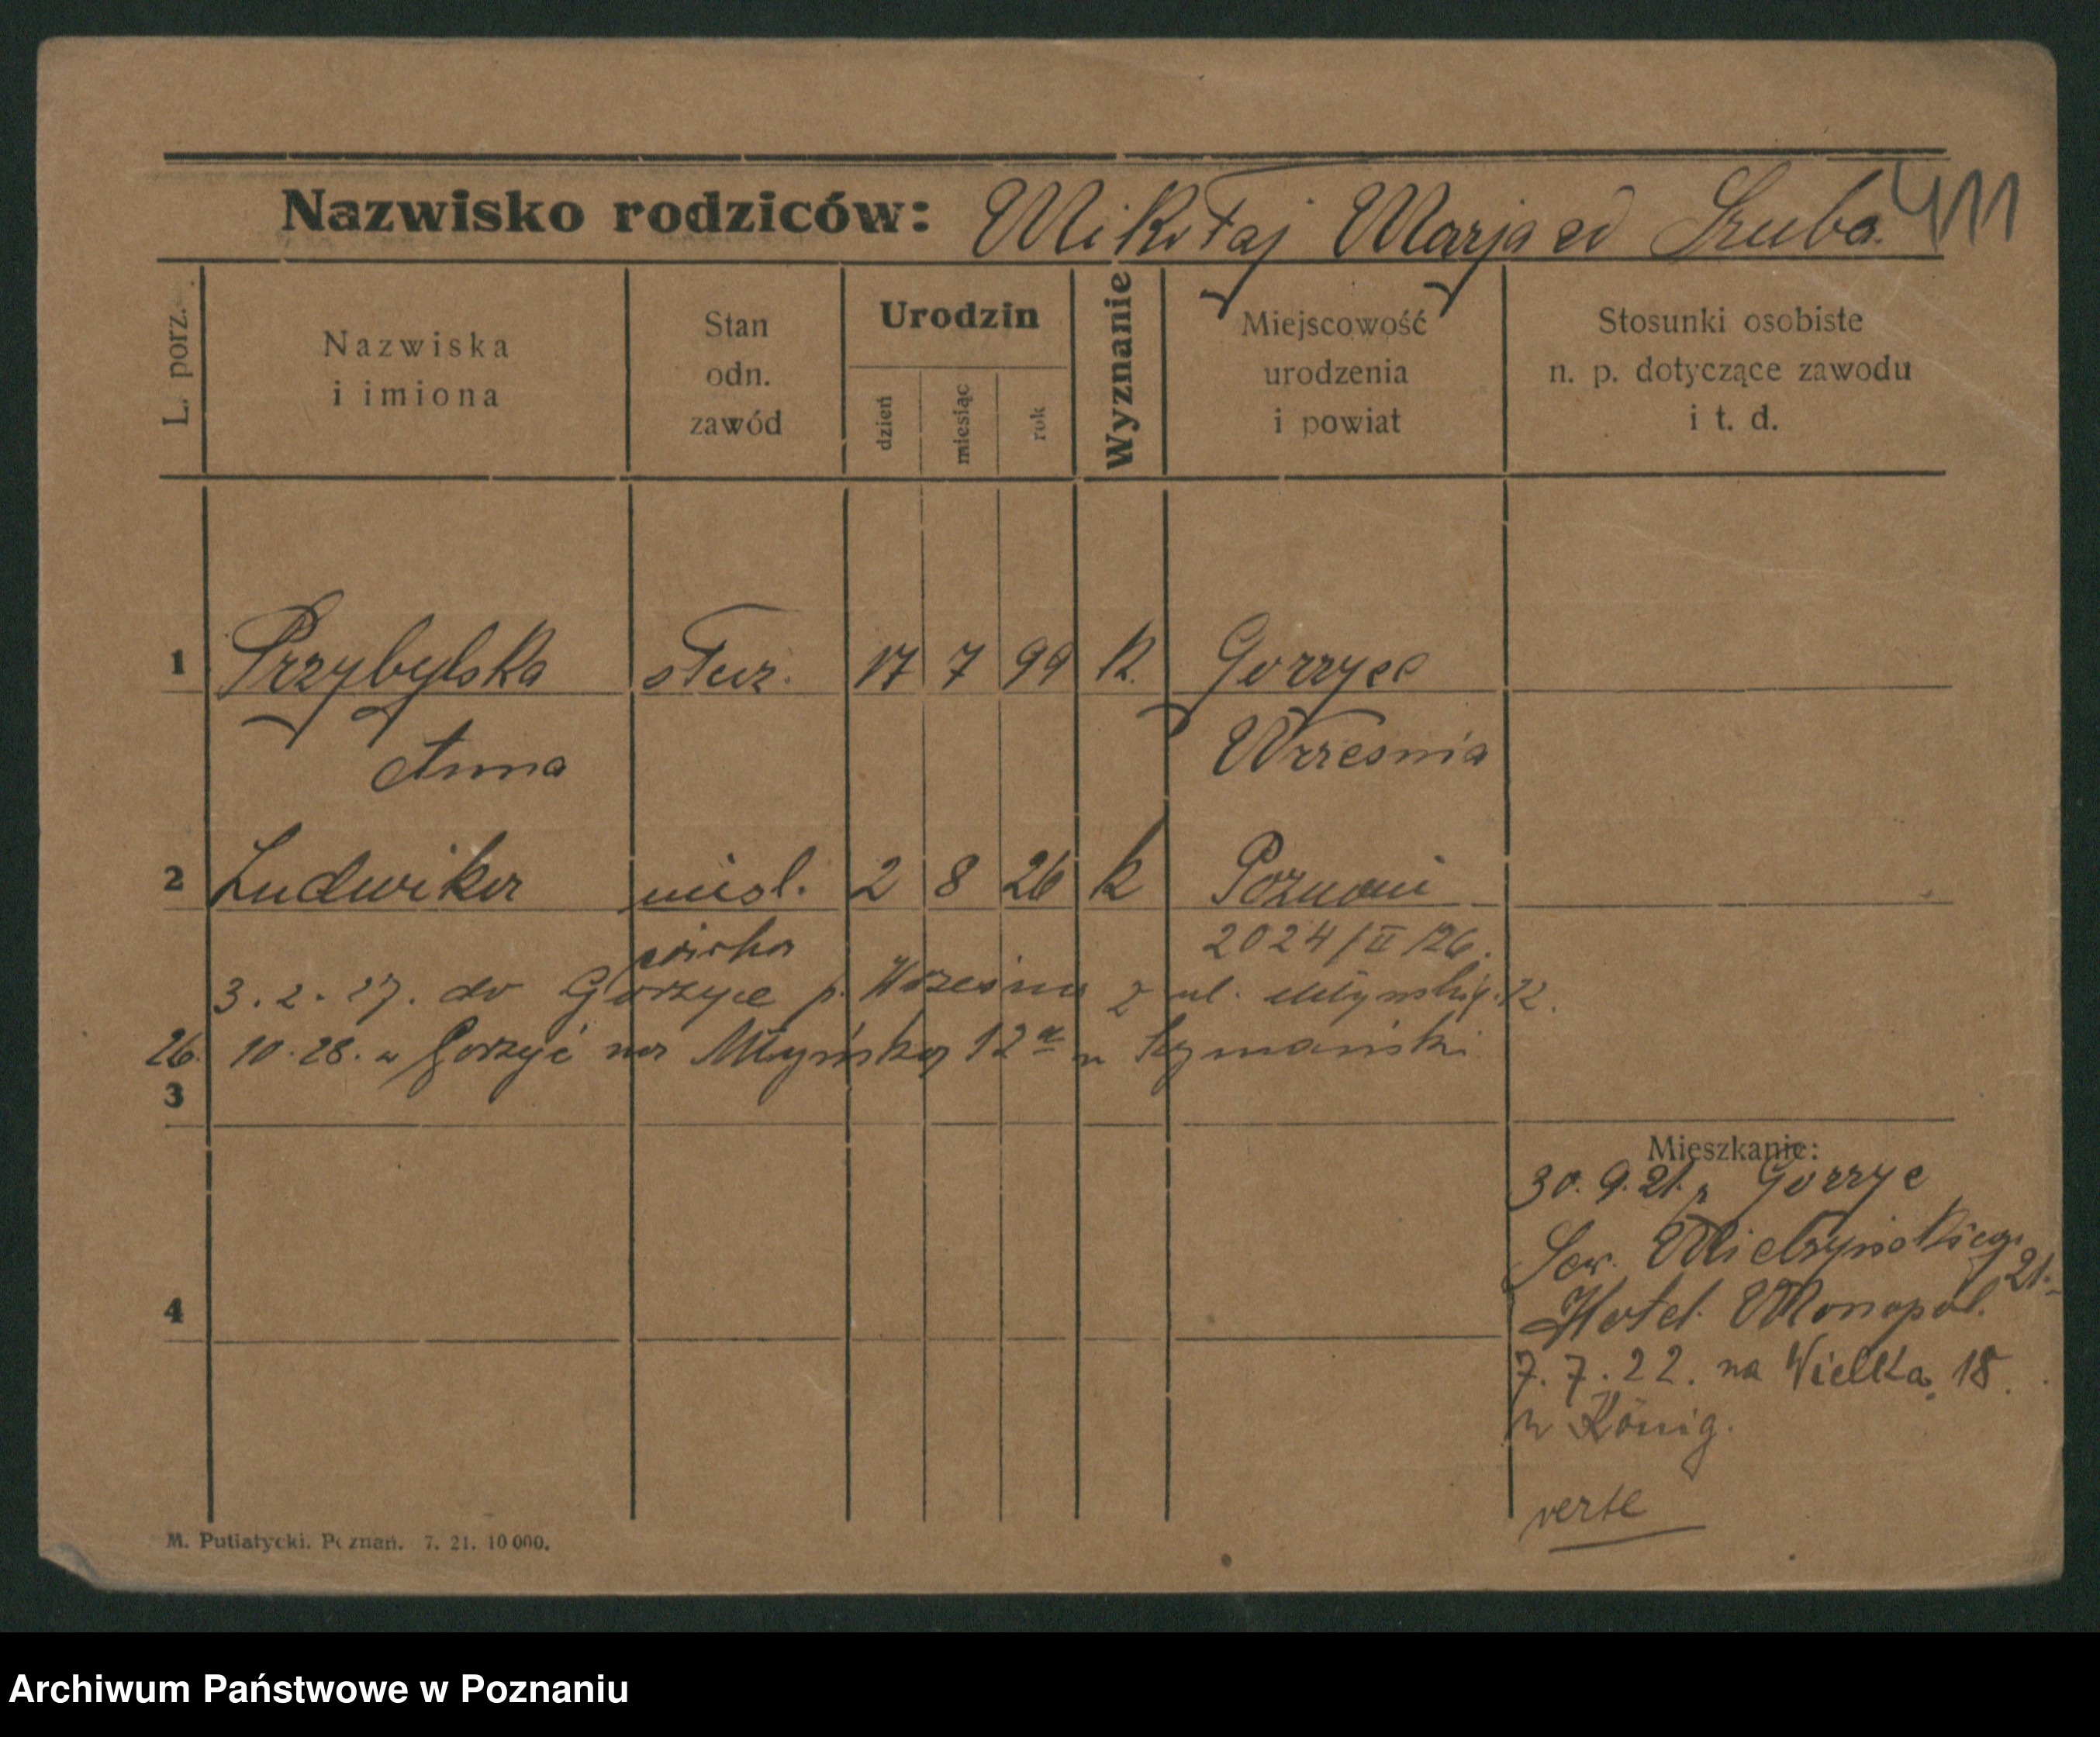 Nazwisko rodziców: Mikołaj Marja ed Szuba. 411
L. porz.
Nazwiska
i imiona
Stan
odn.
zawód
Urodzin
dzień
miesiąc
rok
Wyznanie
Miejscowość
urodzenia
i powiat
Stosunki osobiste
n. p. dotyczące zawodu
i t. d.
1 Przybylska służ. 17 7 99 K. Gorzyce
Anna Wrzesnia
2 Ludwika nieśl. 2 8 26 k Poznań
córka 2024/II/26.
3. 2. 27. do Gorzyce p. Września z ul. Młyńskiej. 12.
26. 10. 28. w Gorzyc na Młyńską 12 a u Szymański
3
Mieszkanie:
30. 9. 21. z Gorzyc
Sew. Mielżyńskieg. 21.
4
Hotel Monopol.
7. 7. 22. na Wielka 18.
u König.
verte
M. Putiatycki. Poznań. 7. 21. 10 000.
Archiwum Państwowe w Poznaniu